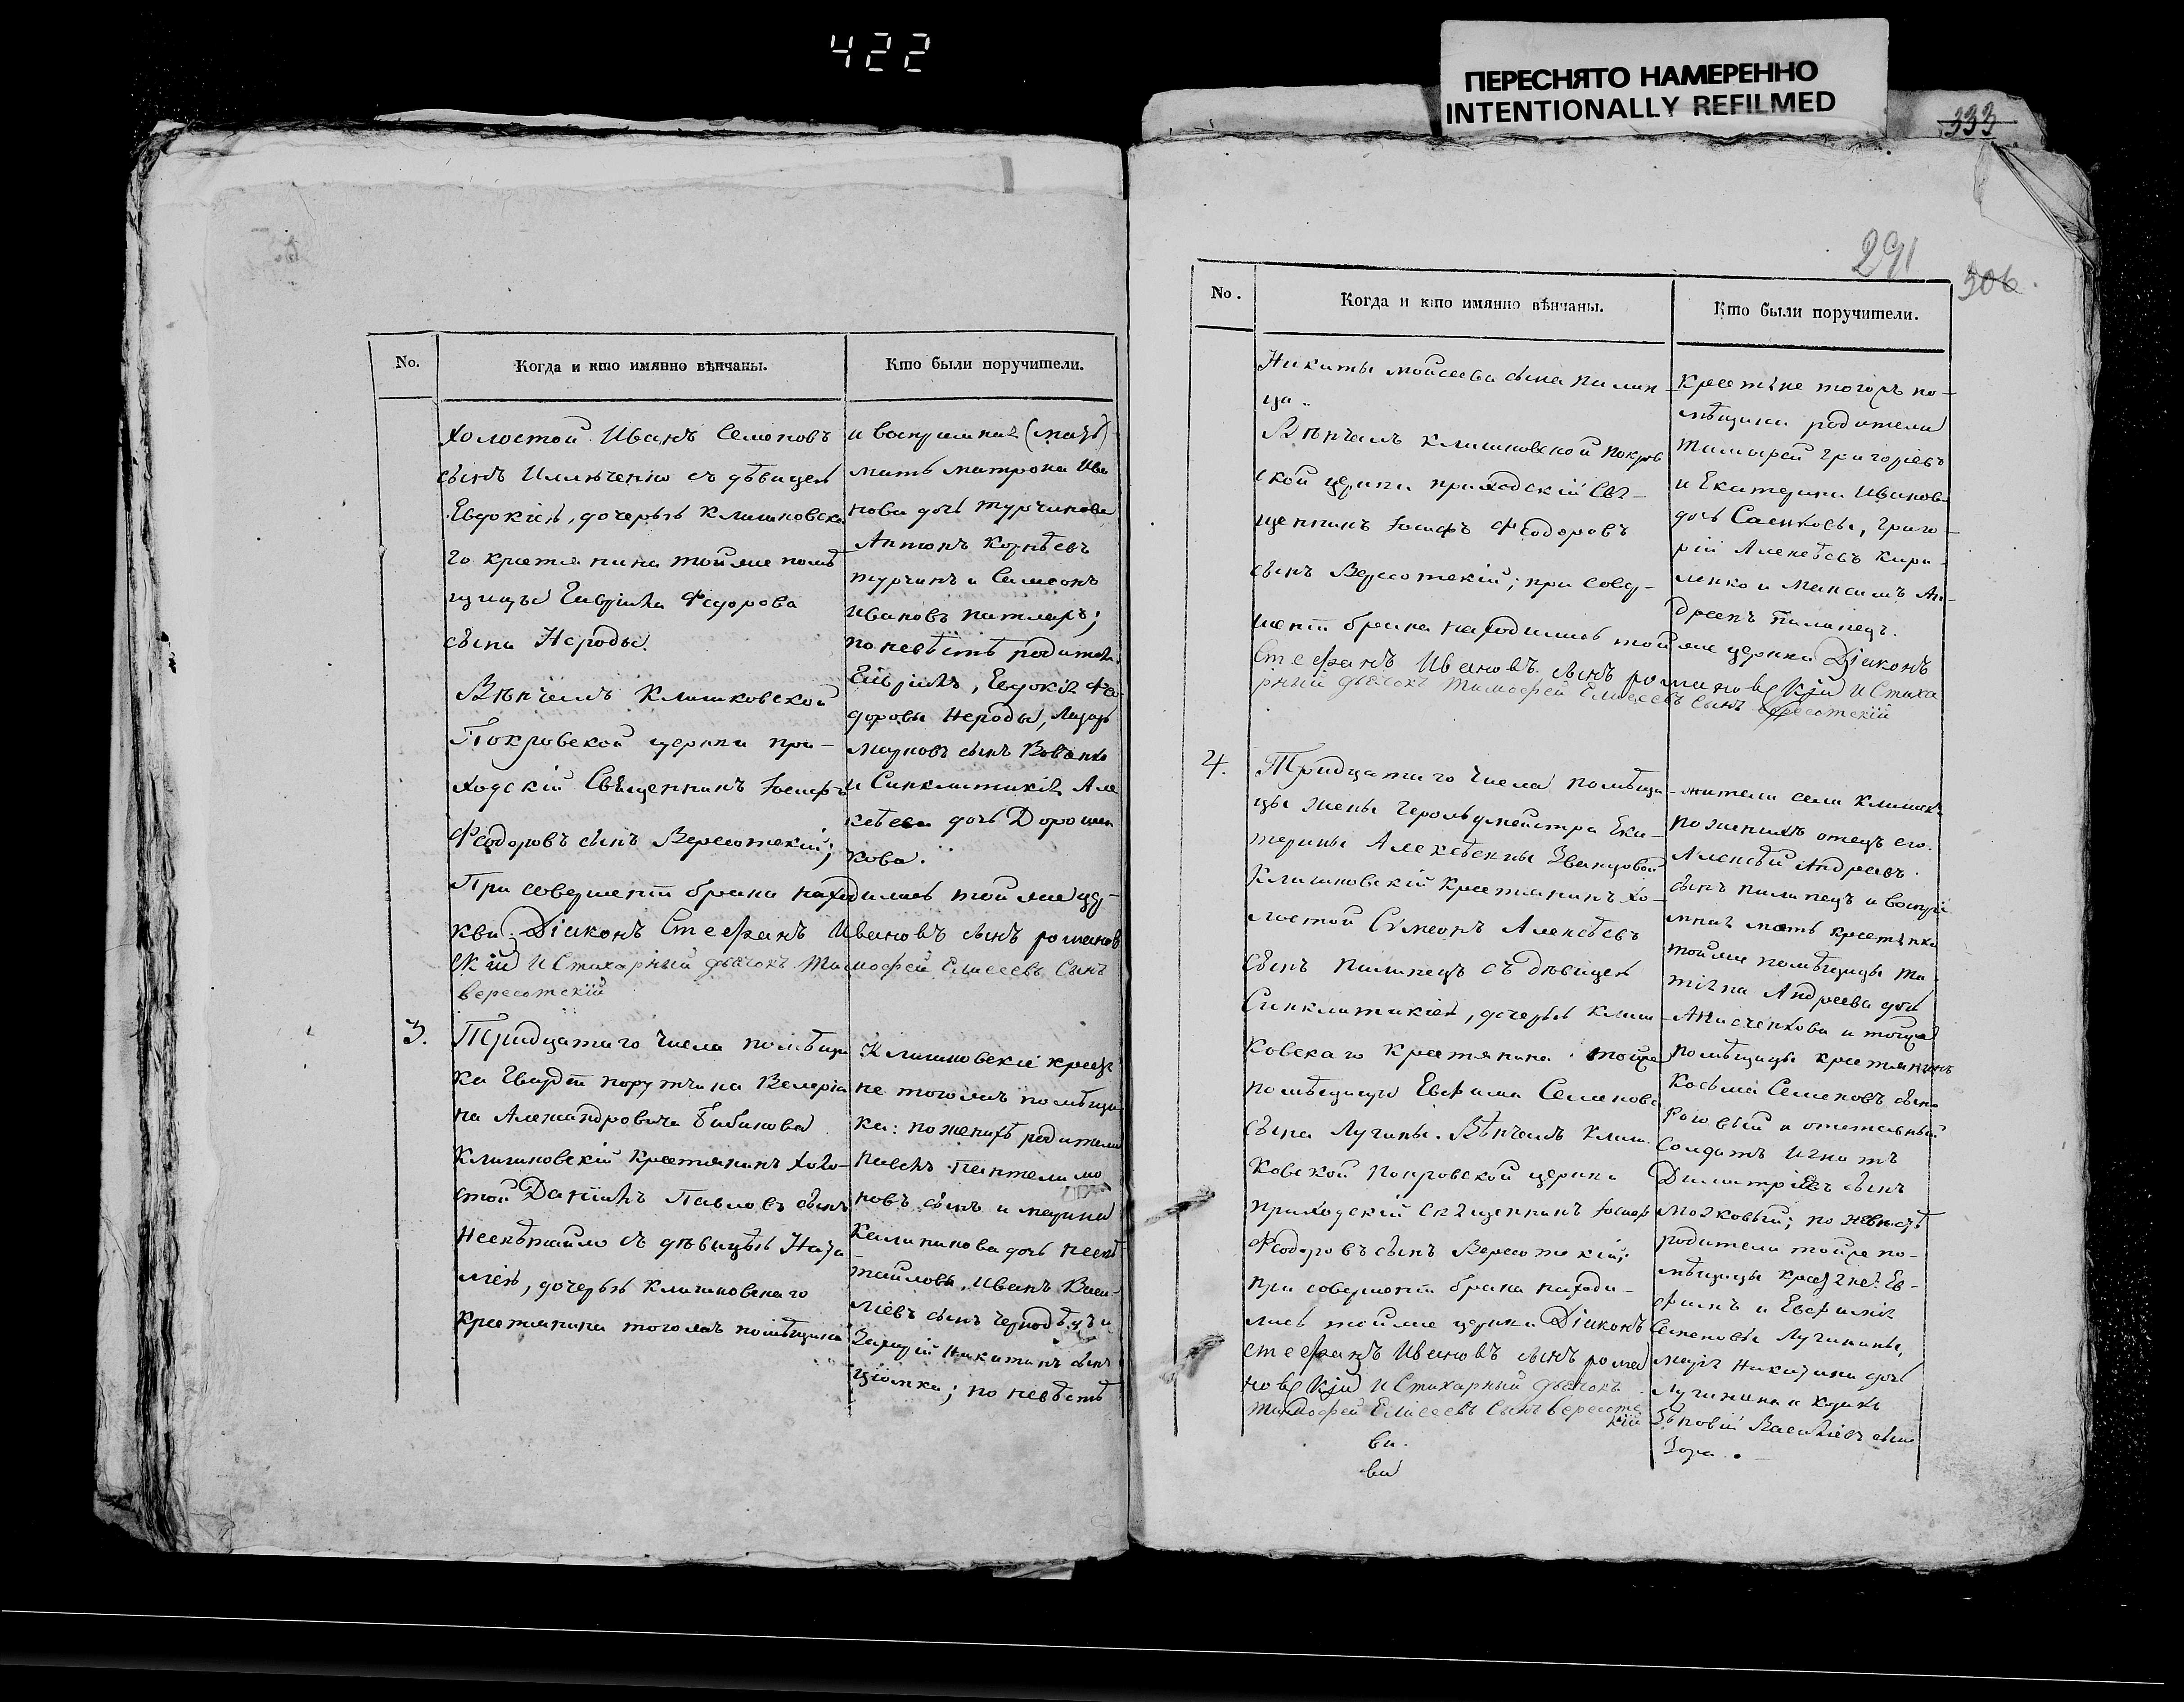 422
ПЕРЕСНЯТО НАМЕРЕННО
INTENTIONALLY REFILMED
333
No.
Когда и кто имянно вѣнчаны.
Кто были поручители.
холостой Иванъ Семеновъ
сынъ съ дѣвицею
Евдокіею, дочерью Клишковска
го крестьянина тойже помѣ
щицы Гавріила Федорова
сына Нероды.
Вѣнчалъ Клишковской
Покровской церкви при-
ходскій Священникъ Іосифъ
Феодоровъ сынъ Вересотскій;
При совершеніи брака находились тойже цер-
кви: Діаконъ Стефанъ Ивановъ сынъ романов
скій и Стихарный дьячокъ Тимофей Елисеевъ Сынъ
вересотскій
и воспріемная (мать)
мать матрона Ива
нова дочь турчинова
Антонъ Корнѣевъ
турчинъ и Симеонъ
Ивановъ
по невѣстѣ родители
Гавріилъ, Евдокія Фео-
доровы Нероды, Лазарь
сынъ
и Синклитикія Але
ксѣева дочь Дорошен
кова.
3.
Тридцатаго Числа помѣщи
ка Гвардіи порутчика Валеріа
на Александровича Бибикова
Клишковскій крестьянинъ холо-
стой Даніилъ Павловъ сынъ
съ дѣвицею Ната
ліею, дочерью Клишковскаго
крестьянина тогожъ помѣщика
Клишковскіе крестья
не тогожъ помѣщи
ка: по женихѣ родители
павелъ пантелимо
новъ сынъ и марина
Калиникова дочь
Иванъ Васи-
ліевъ сынъ
Никитинъ сынъ
по невѣстѣ
291
306
No.
Когда и кто имянно вѣнчаны.
Кто были поручители.
Никиты моисеева сына пилип
ца.
Вѣнчалъ клишковской покров
ской церкви приходскій Свя-
щенникъ Іосифъ Феодоровъ
сынъ Вересотскій; при совер-
шеніи брака находились тойже церкви Діаконъ
Стефанъ Ивановъ сынъ романовскій и Стиха
рный дьячокъ Тимофей Елисеевъ Сынъ вересотскій
крестьяне тогожъ по-
мѣщика родители
Тимофей Григоріевъ
и Екатерина Иванова
дочь Саенковы, Григо-
рій Алексѣевъ Кири-
ленко и Максимъ Ан-
дреевъ Пилипецъ.
4.
Тридцатаго Числа помѣщи-
цы жены Герольдмейстра Ека-
терины Алексѣевны Званцовой
Клишковскій Крестьянинъ хо-
лостой Симеонъ Алексѣевъ
сынъ пилипецъ съ дѣвицею
Синклитикіею, дочерью Клиш-
ковскаго крестьянина тойже
помѣщицы Евфима Семенова
сына Лучины. Вѣнчалъ Клиш-
ковской покровской церкви
приходскій Священникъ Іосиф
Феодоровъ сынъ Вересотскій;
при совершеніи брака находи-
лись тойже церкви Діаконъ
Стефанъ Ивановъ сынъ рома
новскій и Стихарный дьячокъ
Тимофей Елисеевъ Сынъ вересотс
кій
ви.
ви
жители села Клишек
по женихѣ отецъ его
Алексѣй Андреевъ
сынъ пилипецъ и воспріе
мная мать крестьянка
тойже помѣщицы та-
тіана Андреева дочь
и тойже
помѣщицы крестьянинъ
Косьма Семеновъ сынъ
и отставный
солдатъ Игнатъ
Димитріевъ сынъ
по невѣстѣ
родители тойже по-
мѣщицы крестьяне Ев-
фимъ и Евфимія
Семеновы Лучинины,
марія Никитина дочь
Лучинина и
Васильевъ сынъ